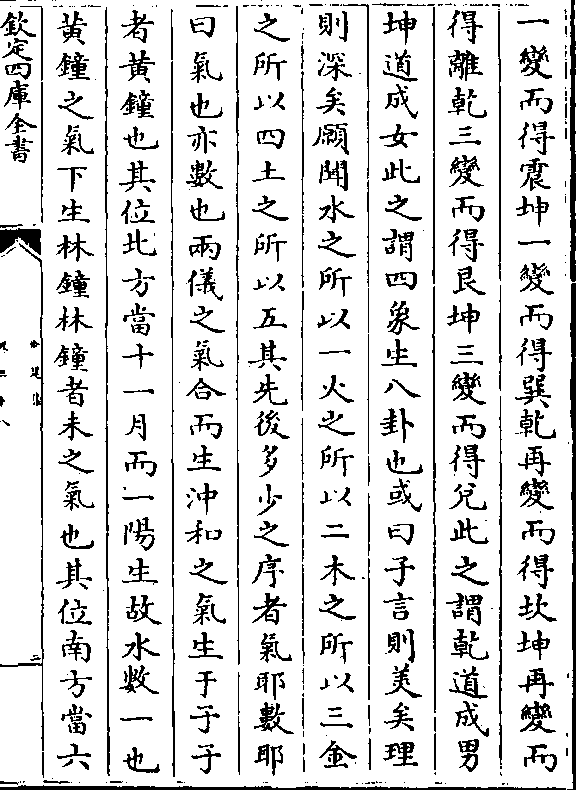 一變而得震坤一變而得巽乾再變而得坎坤再變而
得離乾三變而得艮坤三變而得兌此之謂乾道成男
坤道成女此之謂四象生八卦也或曰子言則美矣理
則深矣願聞水之所以一火之所以二木之所以三金
之所以四土之所以五其先後多少之序者氣耶數耶
曰氣也亦數也兩儀之氣合而生沖和之氣生于子子
者黃鐘也其位北方當十一月而一陽生故水數一也
黃鐘之氣下生林鐘林鐘者未之氣也其位南方當六
欽定四庫全書
二